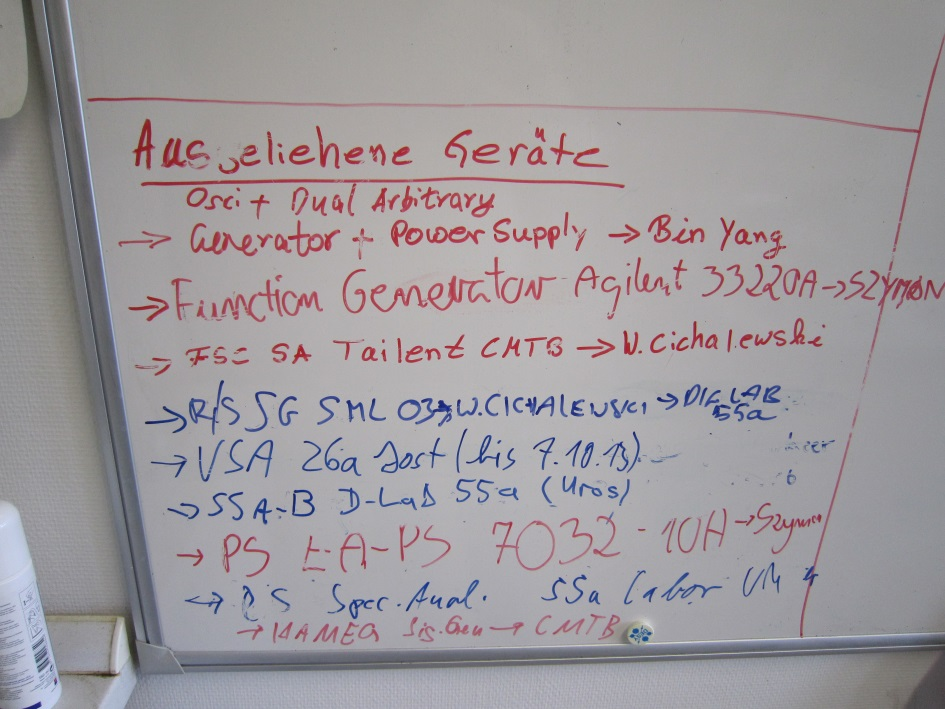 Ausgeliehene Geräte
Osci + Dual Arbitrary
→ Generator + Power Supply → Bin Yang
→ Function Generator Agilent 33220A → SZYMON
→ FSE SA Tailent CMTB → W. Cichalewski
→ R/S SG SML 03 → W. CICHALEWSKI → DIG LAB
55a
→ VSA 26a Jost (bis 7.10.13)
→ SSA-B D-Lab 55a (Uros)
→ PS EA-PS 7032-10A → Szymon
RS Spec. Anal. 55a Labor
→ HAMEG Sig. Gen → CMTB